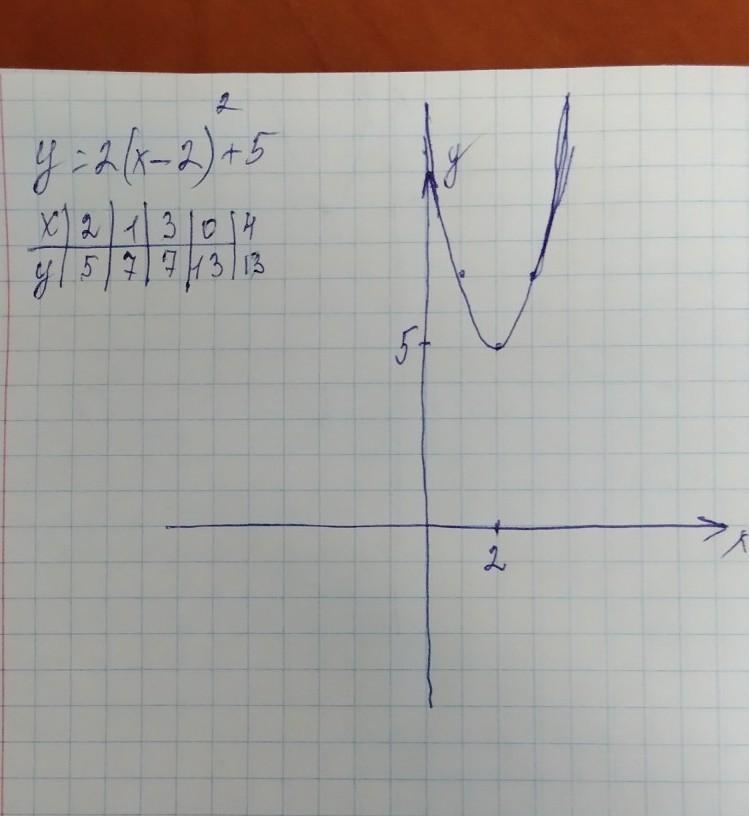 y = 2(x-2)² + 5
x | 2 | 1 | 3 | 0 | 4
y | 5 | 7 | 7 | 13 | 13
y
5
2
x